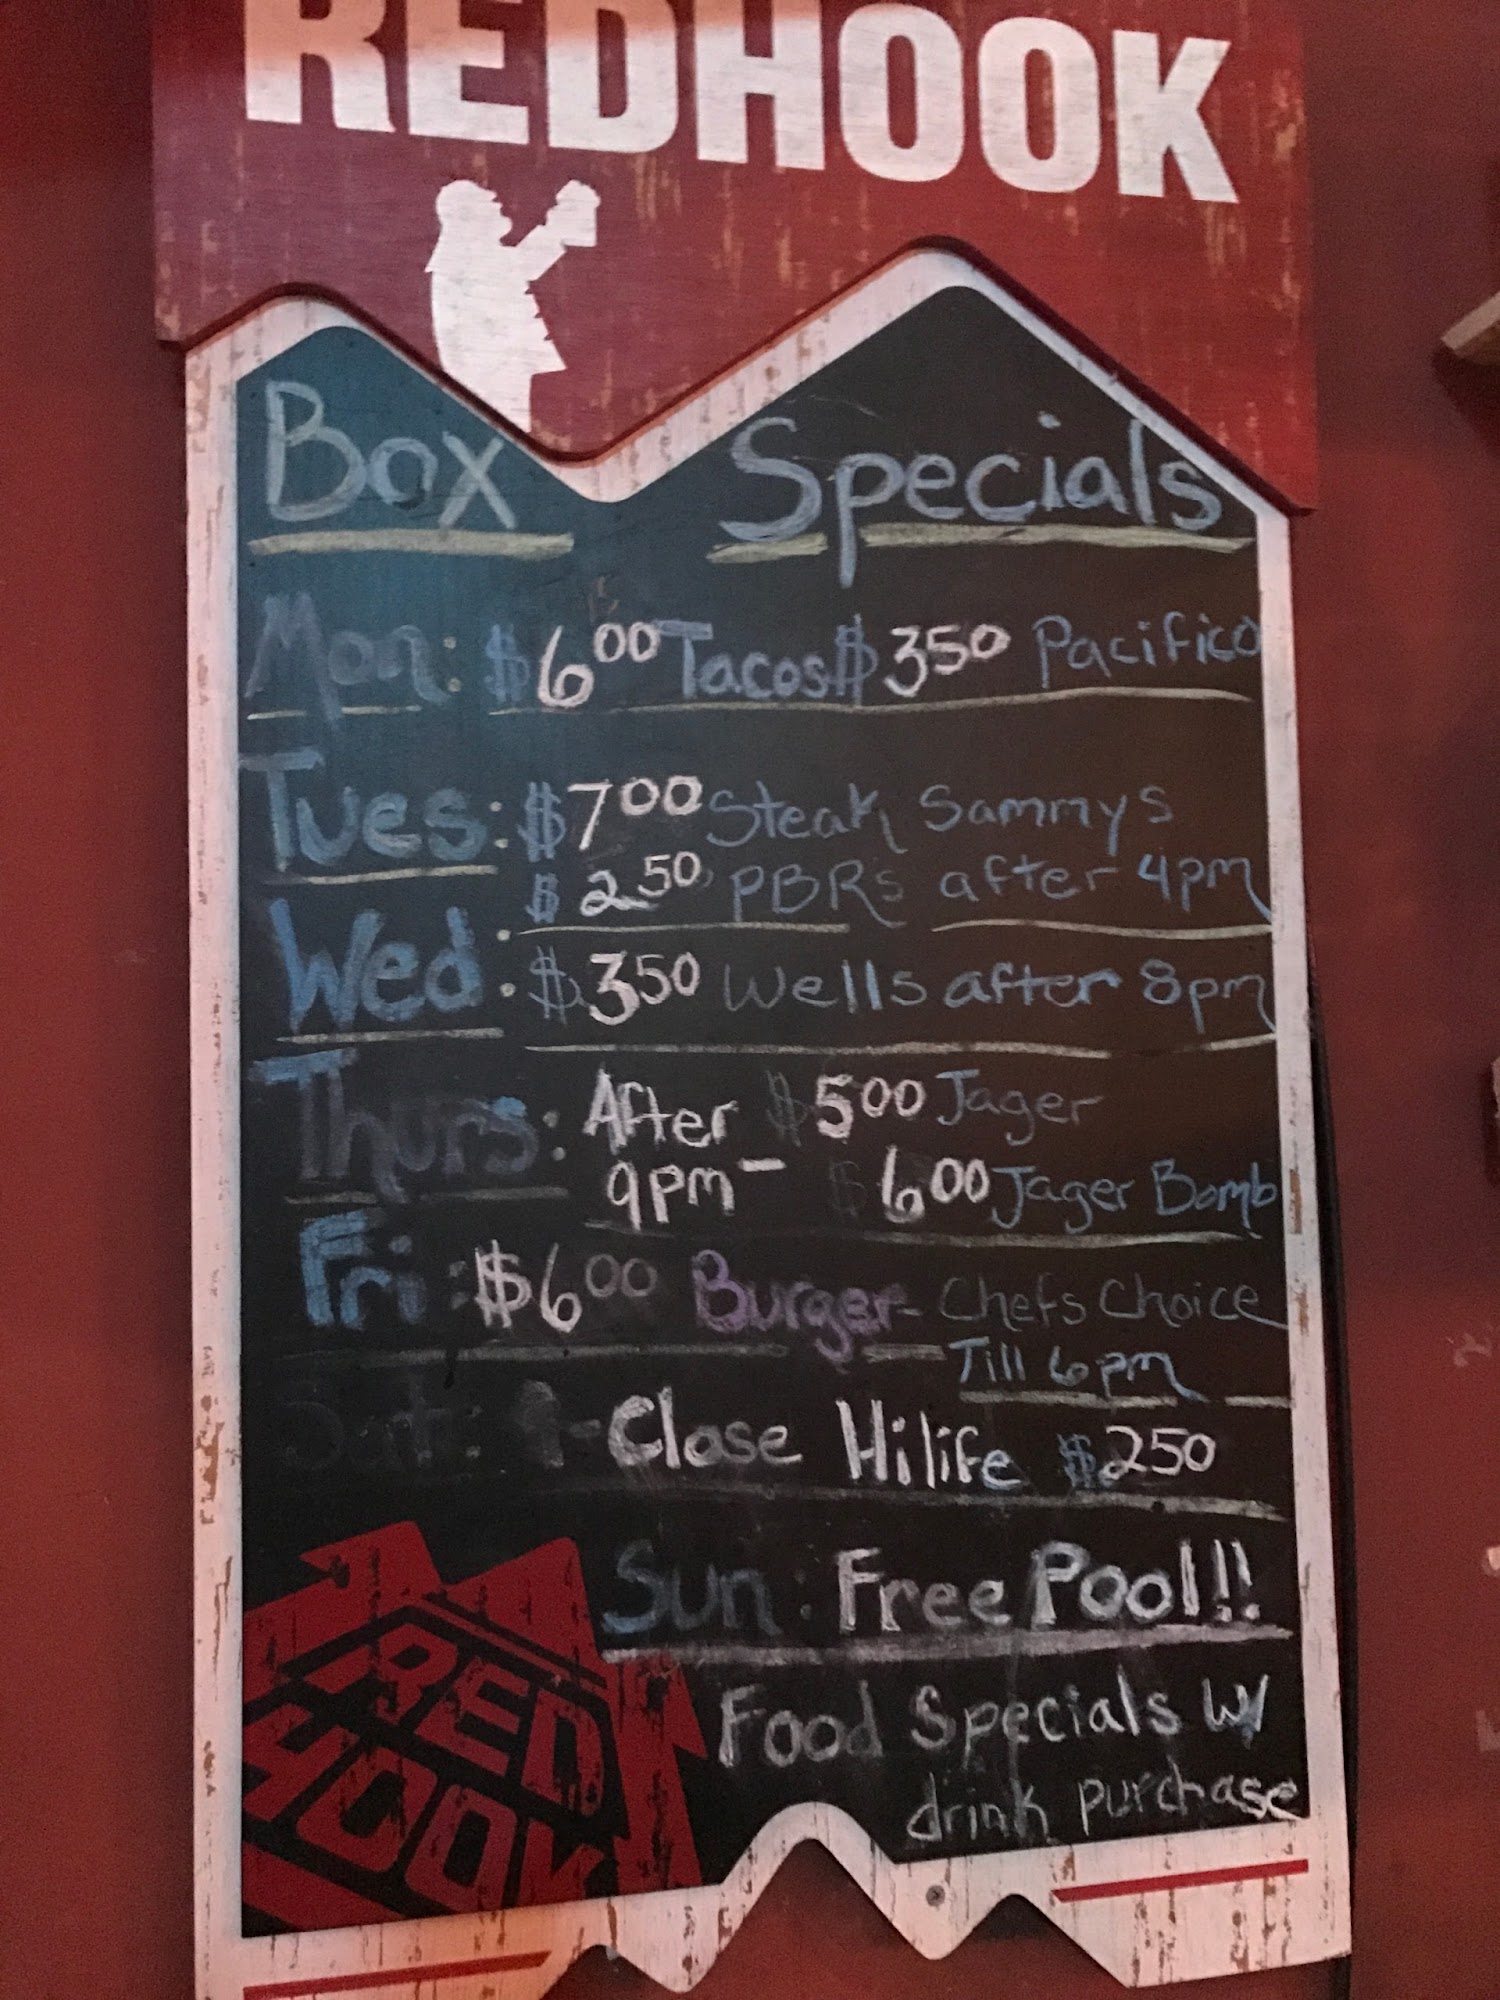 REDHOOK
Box Specials
Mon: $6.00 Tacos $3.50 Pacifico
Tues: $7.00 Steak Sammys
$2.50 PBRs after 4pm
Wed: $3.50 Wells after 8pm
Thurs: After $5.00 Jager
9pm - $6.00 Jager Bomb
Fri: $6.00 Burger - Chefs Choice
Till 6pm
Sat: - Close Hilife $2.50
Sun: Free Pool!!
Food Specials W/
drink purchase
RED
HOOK